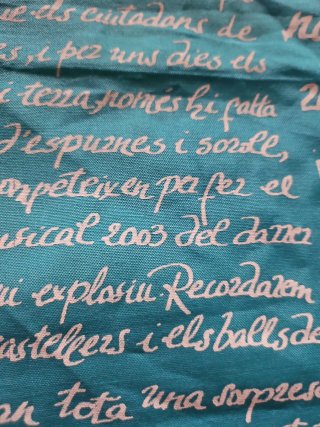 que els ciutadans de
es, i per uns dies els
i terra només hi falta
d'espurnes i soroll,
competeixen per fer el
musical 2003 del darrer
ni explosiu. Recordarem
castellers i els balls de
an tota una sorpresa